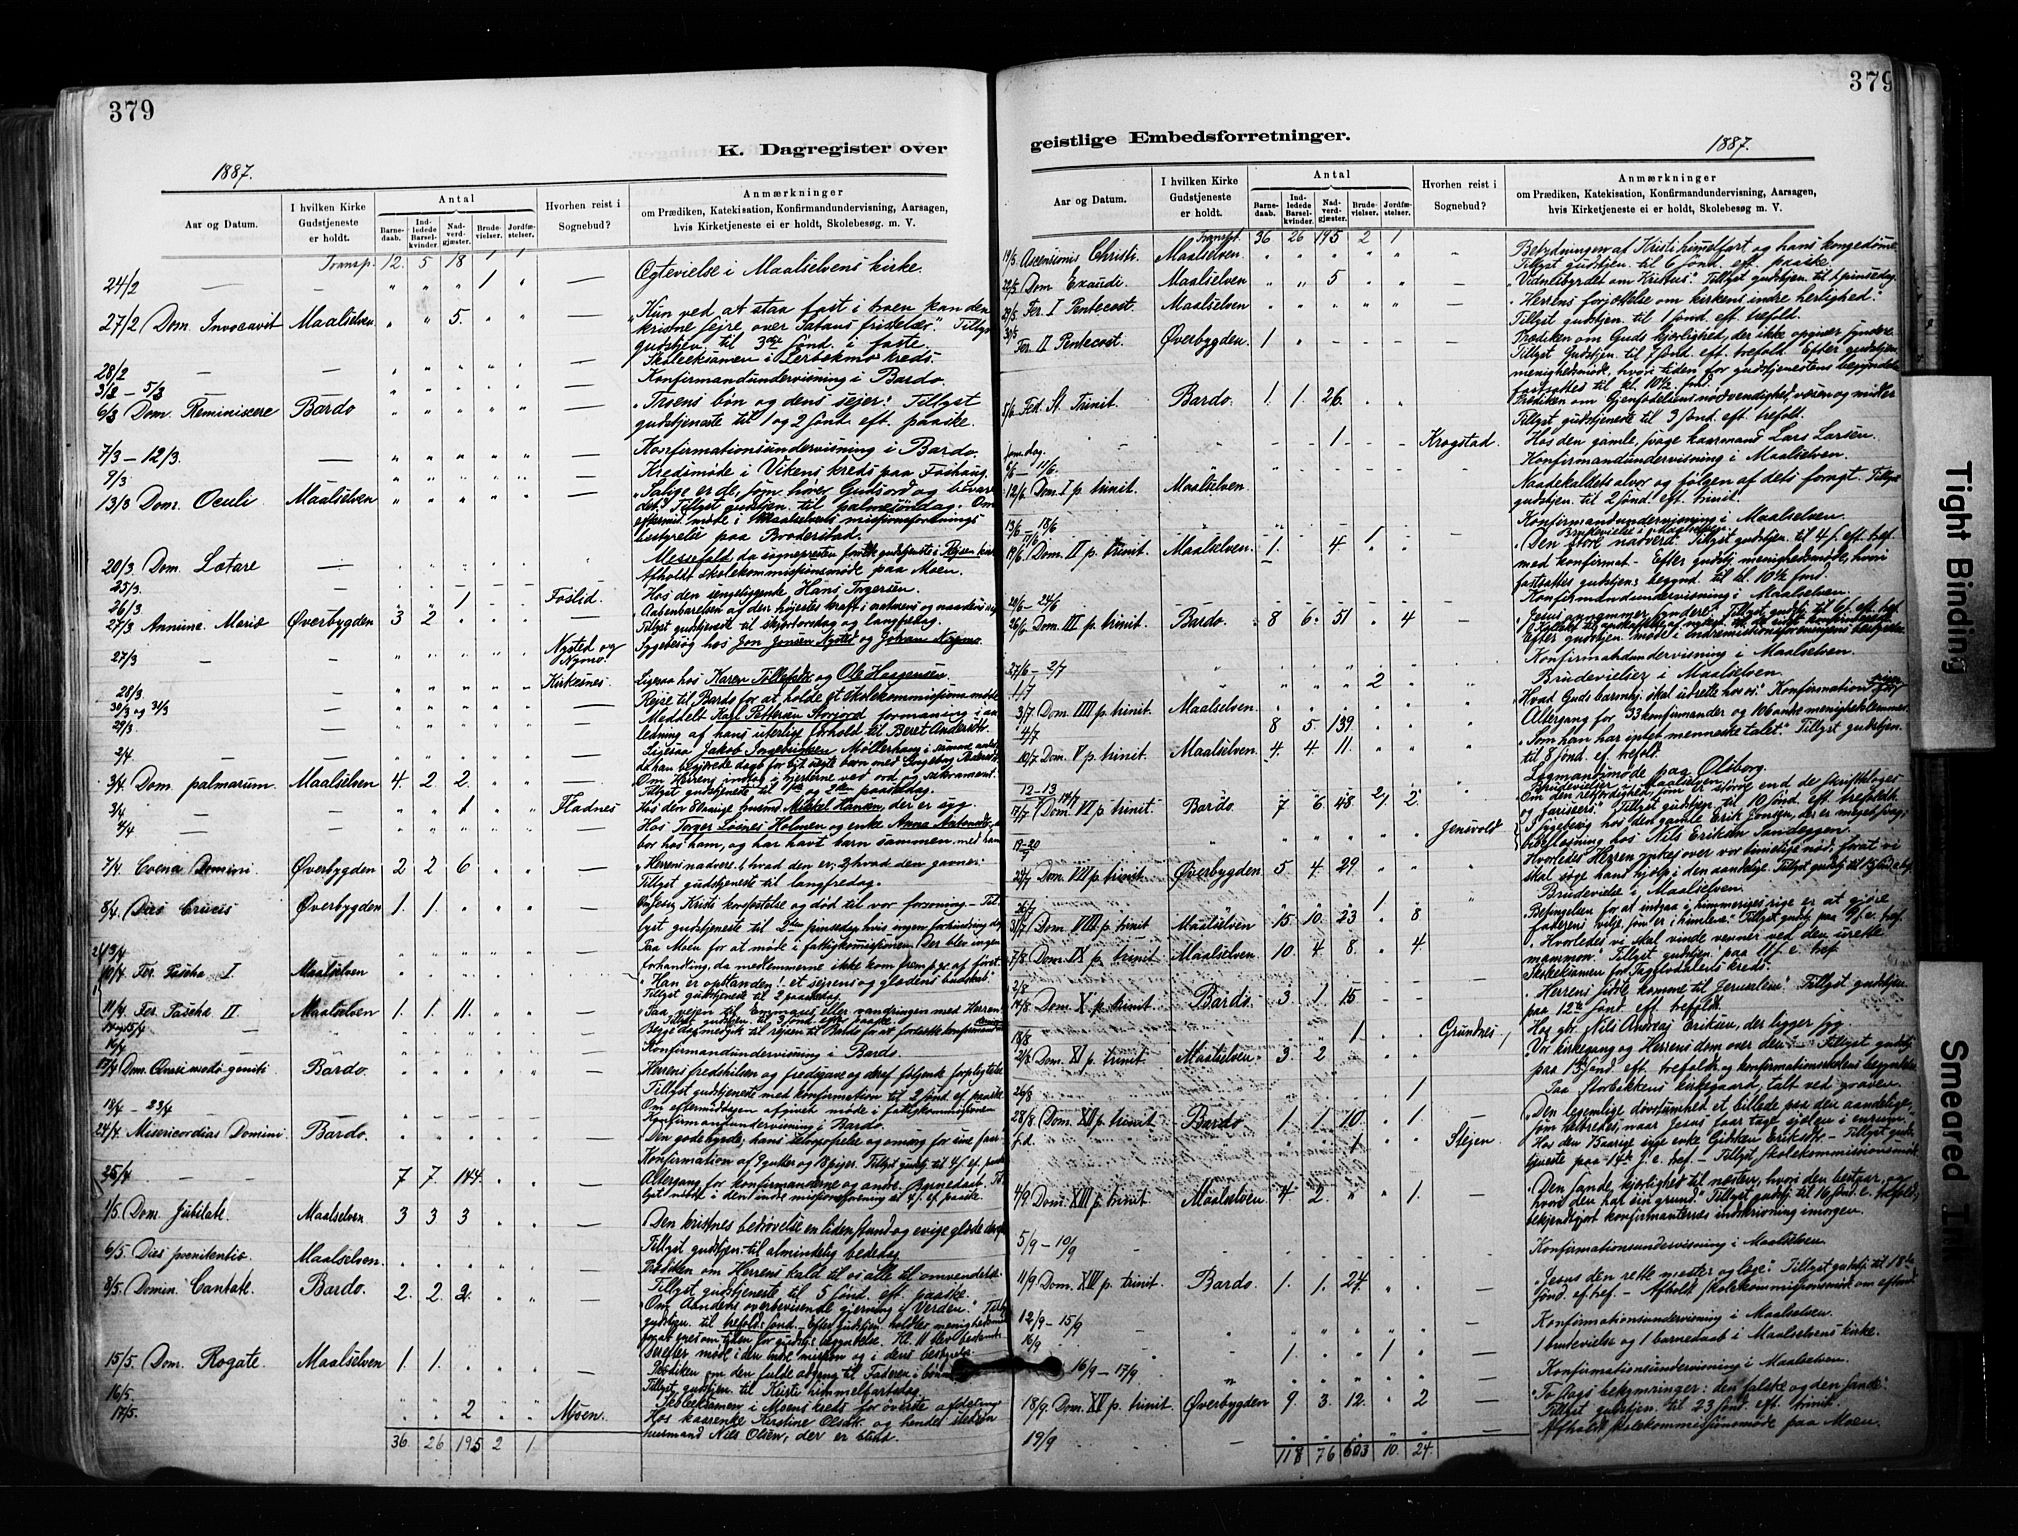 379
K. Dagregister over
1887.
Aar og Datum.
I hvilken Kirke Gudstjeneste er holdt.
Antal
Barnedaab.
Indledede Barselkvinder
Nadverdgjæster.
Brudevielser.
Jordfæstelser.
Hvorhen reist i Sognebud?
Anmærkninger
om Prædiken, Katekisation, Konfirmandundervisning, Aarsagen,
hvis Kirketjeneste ei er holdt, Skolebesøg m. V.
Transp. 12. 5 18 1 1
24/2 — — " " " 1 " — Ægtevielse i Maalselvens kirke.
27/2 Dom. Invocavit Maalselven " " 5. " " — "Kun ved at staa fast i troen kan den
kristne sejre over Satans fristelser." Tillyst
gudstjen. til 3die sønd. i faste.
28/2 — — Skoleeksamen i Lerbakmo kreds.
3/3 — 5/3 — Konfirmandundervisning i Bardo.
6/3 Dom. Reminiscere Bardo — "Troens bøn og dens sejer." Tillyst
gudstjeneste til 1 og 2 sønd. eft. paaske.
7/3 — 12/3. — Konfirmationsundervisning i Bardo.
9/3 — Kredsmøde i Vikens kreds paa Foshaug.
13/3 Dom. Oculi Maalselven — "Salige er de, som hører Guds ord og bevare
det." Tillyst gudstjen. til palmesøndag. Om
efterm. møde i Maalselvens missionsforenings
bestyrelse paa Broderstad.
20/3. Dom. Lætare — Messefald da sognepresten
25/3. — Afholdt skolekommissionsmøde paa Moen.
26/3 — 1 Foslid. Hos den sengeliggende Hans Ingersen.
27/3 Annunc. Mariæ Øverbygden 3 2 — Aabenbarelsen af den højestes kraft i naturens og naadens rige
Tillyst gudstjeneste til skjærtorsdag og langfredag.
27/3 — Nysted og Nymo. Sygebesøg hos Jon Jonsen Nysted og Johan Nymo
28/3. Kirkesnes. Ligesaa hos Karen Tollefsdt. og Ole Haagensen.
30/3 og 31/3 — Rejse til Bardo for at holde et skolekommissionsmøde
29/3. — Meddelt Karl Pettersen Storjord formaning i an-
ledning af hans uterlige forhold til Beret Andersdt.
2/4 — Ligesaa Jakob Ingebrigtsen Møllerhaug i samme anled.
3/4 Dom. palmarum. Maalselven 4. 2 2. — Om Herrens indtog i hjerterne ved ord og sakrament.
Tillyst gudstjeneste til 1ste og 2den paaskedag.
3/4 — 1 Fladnes Hos den 80 aarige husmd. Mikkel Hansen, der er syg.
4/4 — Hos Inger Løsnes Holmen og enke Anna Antonsdt.
bor hos ham, og har havt barn sammen med ham
7/4. Coena Domini. Øverbygden 2 2 6 — "Herrens nadvere 1, hvad den er; 2, hvad den gavner."
Tillyst gudstjeneste til langfredag.
8/4. Dies Crucis Øverbygden 1. 1. — Kristi korsfæstelse og død til vor forsoning — Til-
lyst gudstjeneste til 2den pinsedag hvis ingen forhindring
Paa Moen for at møde i fattigkommissionen (Der blev ingen
forhandling, da medlemmerne ikke kom frem
10/4. Fer. Pascha I Maalselven "Han er opstanden! et sejrens og glædens budskab"
Tillyst gudstjeneste til 2 paaskedag.
11/4. Fer. Pascha II. Maalselven 1. 1. 11. "Paa vejen til Emmaus eller vandringen med Herren."
14 og 15/4 — Begge dage medgik til rejsen til Bardo
16/4 — Konfirmandundervisning i Bardo.
17/4 Dom. Quasimodo-geniti Bardo. Herrens fredshilsen og fredsgave og deraf følgende forpligtelse
Tillyst gudstjeneste med konfirmation til 2 sønd. ef. paaske
Om eftermiddagen afgivet møde i fattigkommissionen
18/4 — 23/4 — Konfirmandundervisning i Bardo.
24/4. Misericordias Domini Bardo. "Den gode hyrde, hans selvopofrelse og omsorg for sine faar"
Konfirmation af 9 gutter og 18 piger. Tillyst gudstj. til 4 s. ef. paaske
25/4 — 7 7. 144. Altergang for konfirmanderne og andre. Barnedaab. Til-
lyst møde i den indre missionsforening til 4 s. ef. paaske.
1/5. Dom. Jubilate. Maalselven 3 3 3 — Den kristnes bedrøvelse en liden stund og evige glæde
Tillyst gudstjen. til almindelig bededag
6/5. Dies poenitentiæ. Maalselven. — Prædiken om Herrens kald til os alle til omvendelse.
Tillyst gudstjeneste til 5 sønd. eft. paaske.
8/5. Domin. Cantate. Bardo. 2. 2. 2. — "Om Aandens overbevisende gjerning i Verden." Tillyst
gudstjen. til trefold. sønd. Efter gudstjen. holdtes menighedsmøde
Derefter møde i den indre mission og i dens bestyrelse
15/5. Dom. Rogate. Maalselven 1. 1. — Prædiken om den fulde adgang til Faderen i bønnen
Tillyst gudstjen. til Kristi himmelfartsdag.
16/5. Skoleeksamen i Moens kreds for øverste afdeling
17/5. 2 Moen. Hos kaarenke Kirstine Olsdt. og hendes stedsøn
husmand Nils Olsen, der er blind.
36 26 195 2 1
379
geistlige Embedsforretninger.
1887.
Aar og Datum.
I hvilken Kirke Gudstjeneste er holdt.
Antal
Barnedaab.
Indledede Barselkvinder.
Nadverdgjæster.
Brudevielser.
Jordfæstelser.
Hvorhen reist i Sognebud?
Anmærkninger
om Prædiken, Katekisation, Konfirmandundervisning, Aarsagen,
hvis Kirketjeneste ei er holdt, Skolebesøg m. V.
Transpt. 36 26 195 2 1
19/5. Ascensionis Christi. Maalselven. — Betydningen af Kristi himmelfart og hans kongedømme
Tillyst gudstjen. til 6 sønd. eft. paaske.
22/5 Dom Exaudi. Maalselven 5 — "Vidnesbyrdet om Kristus." Tillyst gudstjen. til 1 pinsedag.
29/5. Fer. I Pentecost. Maalselven — "Herrens forjættelse om kirkens indre herlighed."
Tillyst gudstjen. til 1 sønd. eft. trefold.
30/5 Fer. II Pentecost. Øverbygden. 1 — Prædiken om Guds kjærlighed, der ikke opgiver syndere
Tillyst Gudstjen. til 7 sønd. eft. trefold. Efter gudstjen.
menighedsmøde, hvori tiden for gudstjenestens begyndelse
fastsattes til kl. 10½ form.
5/6. Fest. St. Trinit. Bardo. 1. 1. 26. Prædiken om Gjenfødelsens nødvendighed, væsen og midler
Tillyst gudstjeneste til 3 sønd. eft. trefold.
s. dag. 1 Krogstad. Hos den gamle, svage kaarmand Lars Larsen
6/6 — 11/6. Konfirmandundervisning i Maalselven.
12/6. Dom. I p. trinit. Maalselven. Naadekaldets alvor og følgen af dets foragt. Tillyst
gudstjen. til 2 sønd. eft. trinit.
13/6 — 18/6 Konfirmandundervisning i Maalselven.
17/6 1 Brudevielse i Maalselven.
19/6. Dom. II p. trinit. Maalselven. 1. 4 "Den store nadvere." Tillyst gudstjen. til 4 s. eft. tref.
med konfirmat. — Efter gudstj. menighedsmøde, hvori
fastsattes gudstjen.s begynd. til kl. 10½ form.
20/6 — 24/6 Konfirmandundervisning i Maalselven.
26/6. Dom. III p. trinit. Bardo. 8 6. 51 4 — "Jesus annammer syndere." Tillyst gudstj. til 6 s. eft. tref.
Efter gudstjen. møde i Indremissionsforeningens bestyrelse
27/6 — 2/7 Konfirmandundervisning i Maalselven.
1/7 2 Brudevielser i Maalselven.
3/7. Dom. IIII p. trinit. Maalselven. Hvad Guds barmhj. skal udrette hos os." Konfirmation
4/7 8 5. 139. Altergang for 33 konfirmander og 106 andre menighedslemmer
10/7. Dom. V p. trinit. Maalselven. 4. 4. 11. "Som han har intet menneske talet." Tillyst gudstjen.
til 8 sønd. ef. trefold.
12 — 13 Lagmandsmøde paa Olsborg.
14/7 2 Brudevielser i Maalselven
17/7. Dom. VI p. trinit. Bardo. 7 6 48 2. Om den retfærdighed, som er større end de skriftkloges
og farisæers." Tillyst gudstjen. til 10 sønd. eft. trefoldh.
19-20/7 Jensvold Sygebesøg hos den gamle Erik Jonsen, der er meget syg;
ligesaa hos Nils Eriksen Sandeggen.
24/7. Dom. VII p. trinit. Øverbygden 5. 4. 29 Hvorledes Herren ynkes over vor timelige nød, forat vi
skal søge hans hjælp i den aandelige. Tillyst gudstj. til 15 sønd. e. tref.
26/7 1 Brudevielse i Maalselven.
31/7. Dom. VIII p. trinit Maalselven 15. 10. 23 8 Betingelsen for at indgaa i himmeriges rige er at gjøre
faderens vilje, som er i himlene." Tillyst gudstj. paa 9 s. e. tref.
7/8. Dom. IX p. trinit. Maalselven. 10. 4 8 4 "Hvorledes vi skal vinde venner ved den urette
mammon." Tillyst gudstjen. paa 11 s. e. tref.
2/8 Skoleeksamen for Tagflodalens kreds.
14/8. Dom. X p. trinit. Bardo. 3. 1. 15 "Herrens sidste komme til Jerusalem." Tillyst gudstjen.
paa 12te sønd. eft. trefoldh.
18/8 1 Grundnes, Hos gbr. Nils Andreas Eriksen, der ligger syg.
21/8. Dom. XI p. trinit Maalselven. 3. 2 Vor kirkegang og Herrens dom over den Tillyst gudstj.
paa 13 sønd. eft. trefoldh. og konfirmationsskolens begyndelse
26/8 1 Paa Storbakkens kirkegaard, talt ved graven.
28/8. Dom. XII p. trinit. Bardo 1 1. 10 1 — Den legemlige døvstumhed et billede paa den aandelige
s. d. 1 Stejen. Hos den 75 aarige syge enke Gjertrud Eriksdt. — Tillyst gud-
tjeneste paa 14de s. e. tref. — Tillyst skolekommissionsmøde
4/9. Dom. XIII p. trinit Maalselven 4 2. 1. — "Den sande kjærlighed til næsten, hvori den bestaar, og
hvori den har sin grund." Tillyst gudstj. til 16 sønd. e. trefold;
bekjendtgjort konfirmanternes indskrivning imorgen.
5/9 — 10/9 Konfirmationsundervisning i Maalselven.
11/9 Dom. XIV p. trinit. Bardo. 1. 1. 24. — "Jesus den rette mester og læge." Tillyst gudstj. til 18de
sønd. ef. tref. — Afholdt skolekommissionsmøde om efterm.
12/9 — 15/9 Konfirmationsundervisning i Maalselven.
16/9 1 1 1 brudevielse og 1 barnedaab i Maalselvens kirke.
16/9 — 17/9 Konfirmationsundervisning i Maalselven
18/9. Dom. XV p. trinit. Øverbygden 9 3. 12. 2 — "To slags bekymringer: den falske og den sande."
Tillyst gudstjen. til 23 sønd. eft. trinit.
19/9 — Afholdt skolekommissionsmøde paa Moen.
118 76 603 10. 24.
Tight Binding
Smeared Ink